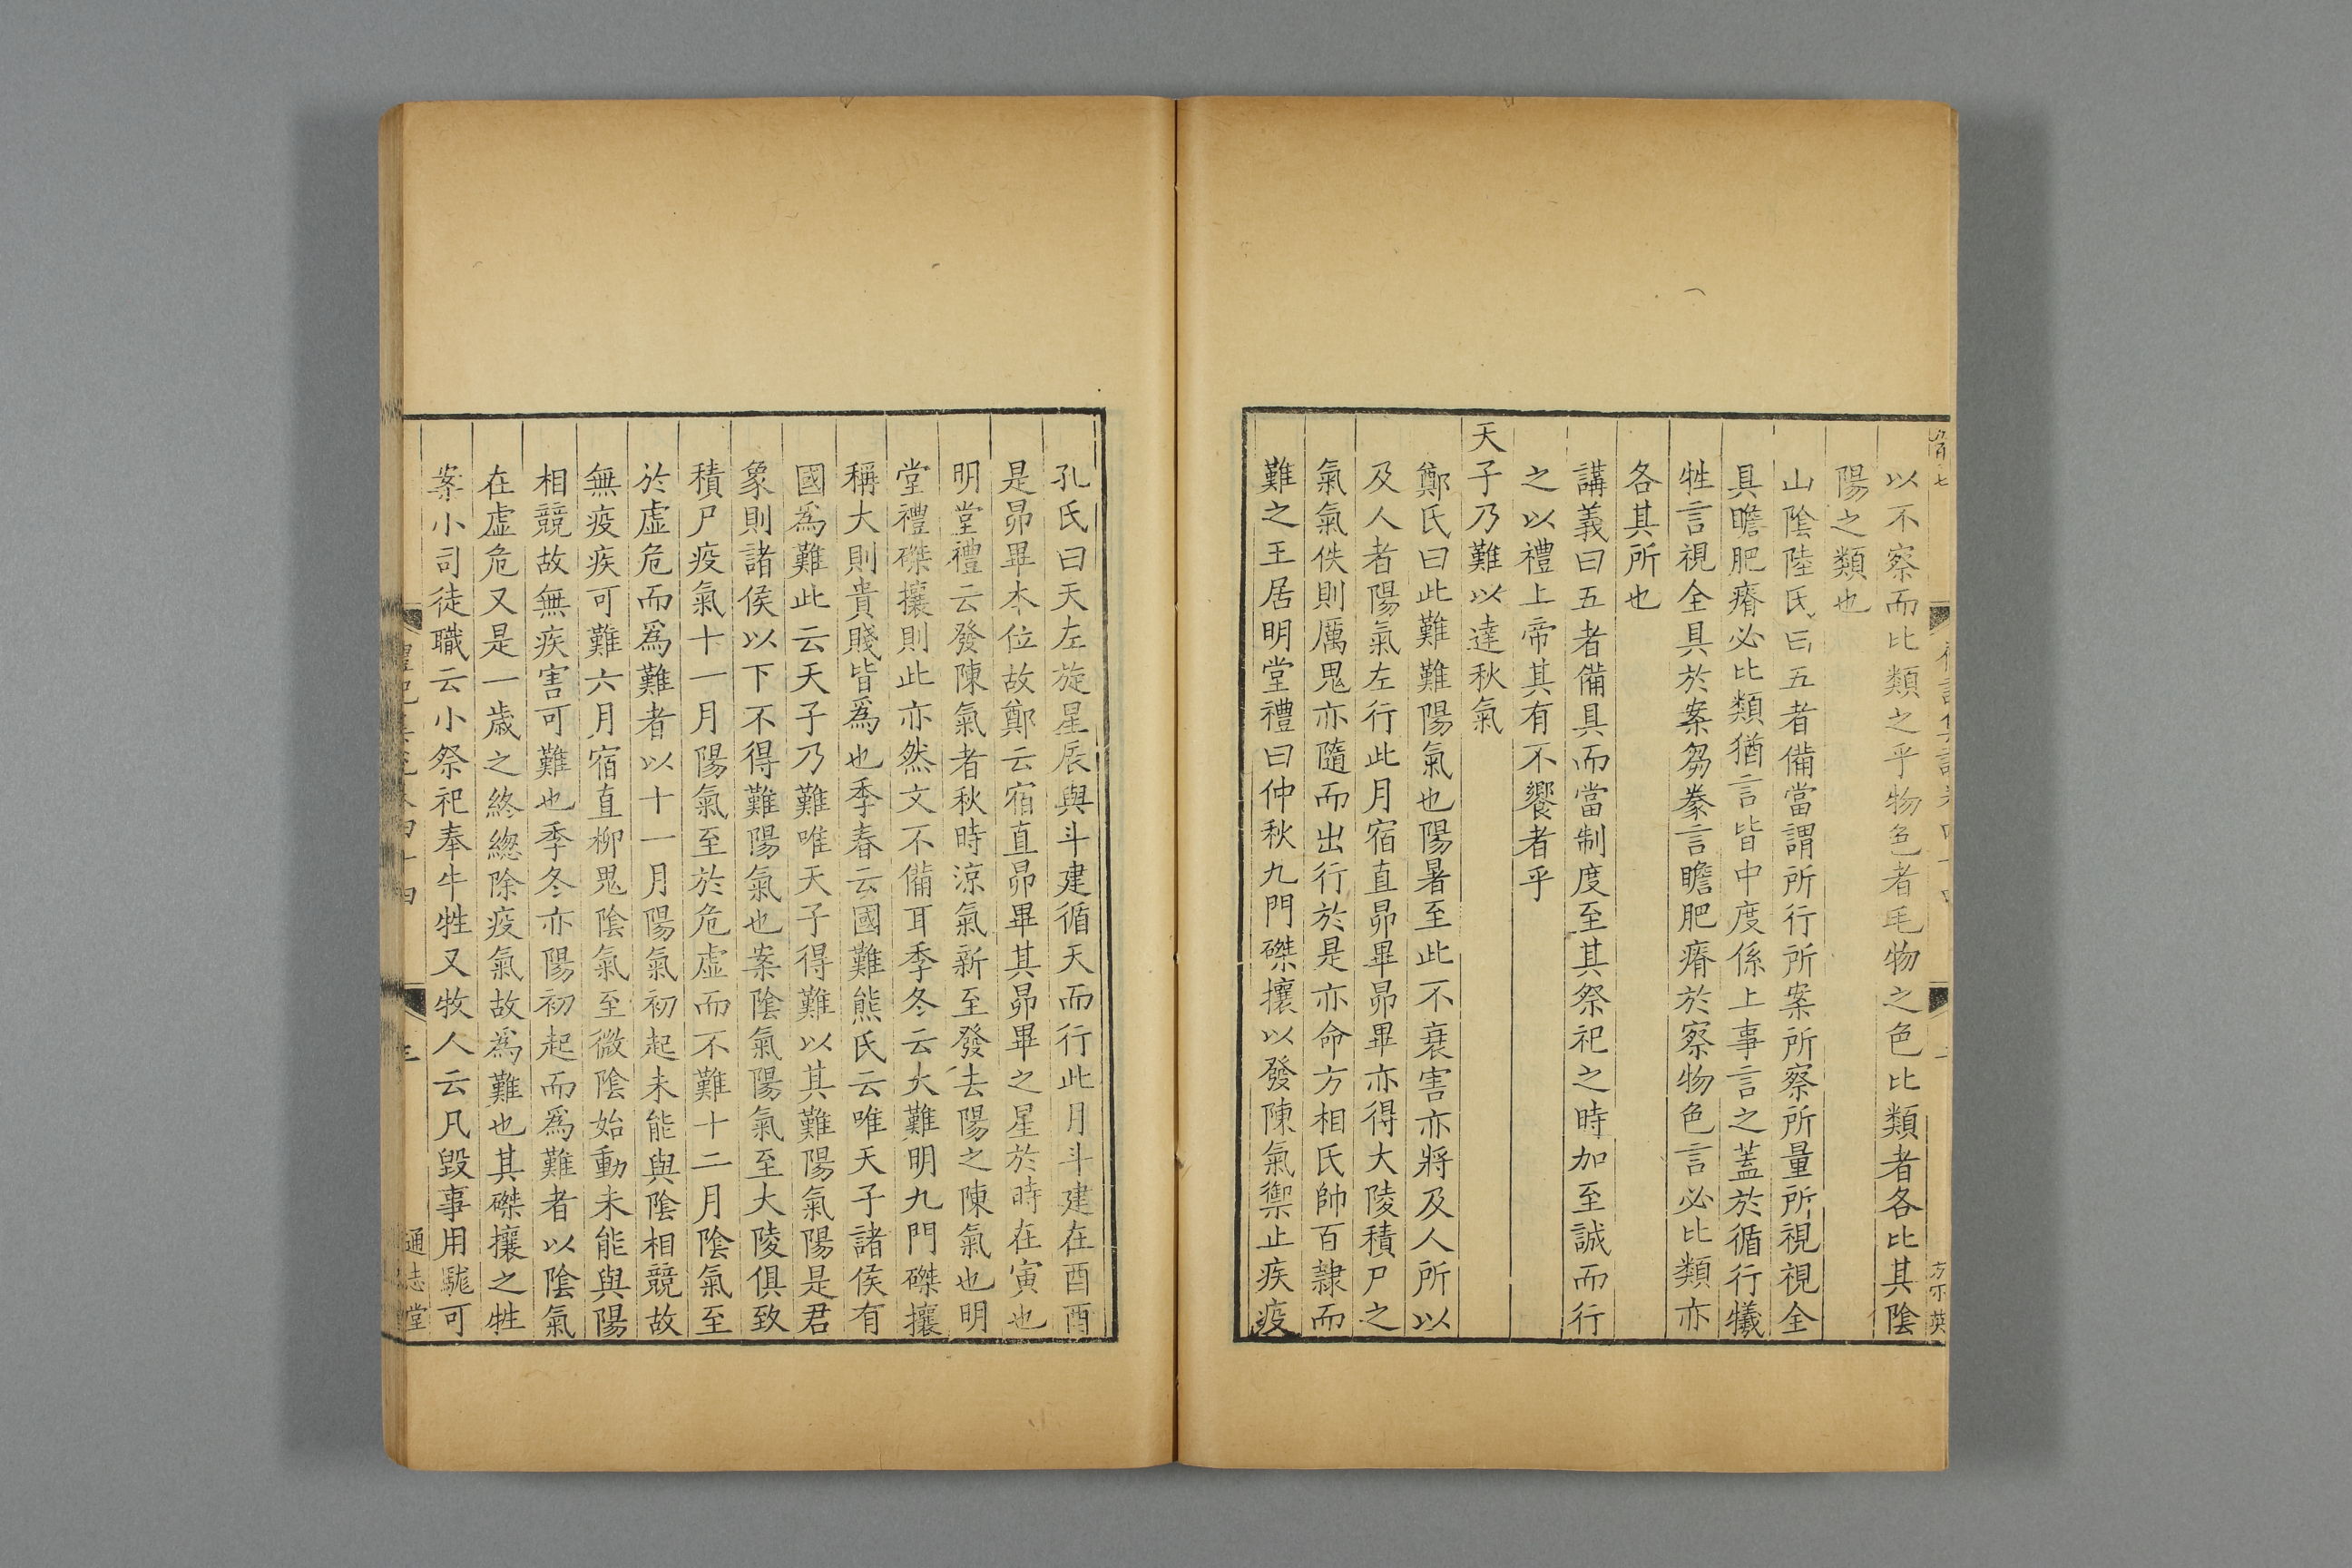 以不察而比類之乎物色者毛物之色比類者各比其陰
陽之類也
山陰陸氏曰五者備當謂所行所案所察所量所視視全
具瞻肥瘠必比類猶言皆中度係上事言之蓋於循行犧
牲言視全具於案芻豢言瞻肥瘠於察物色言必比類亦
各其所也
講義曰五者備具而當制度至其祭祀之時加至誠而行
之以禮上帝其有不饗者乎
天子乃難以達秋氣
鄭氏曰此難難陽氣也陽暑至此不衰害亦將及人所以
及人者陽氣左行此月宿直昴畢昴畢亦得大陵積尸之
氣氣佚則厲鬼亦隨而出行於是亦命方相氏帥百隷而
難之王居明堂禮曰仲秋九門磔攘以發陳氣禦止疾疫
孔氏曰天左旋星辰與斗建循天而行此月斗建在酉酉
是昴畢本位故鄭云宿直昴畢其昴畢之星於時在寅也
明堂禮云發陳氣者秋時涼氣新至發去陽之陳氣也明
堂禮磔攘則此亦然文不備耳季冬云大難明九門磔攘
稱大則貴賤皆爲也季春云國難熊氏云唯天子諸侯有
國爲難此云天子乃難唯天子得難以其難陽氣陽是君
象則諸侯以下不得難陽氣也案陰氣陽氣至大陵俱致
積尸疫氣十一月陽氣至於危虛而不難十二月陰氣至
於虛危而爲難者以十一月陽氣初起未能與陰相競故
無疫疾可難六月宿直柳鬼陰氣至微陰始動未能與陽
相競故無疾害可難也季冬亦陽初起而爲難者以陰氣
在虛危又是一歲之終總除疫氣故爲難也其磔攘之牲
案小司徒職云小祭祀奉牛牲又牧人云凡毀事用駹可
三
通志堂